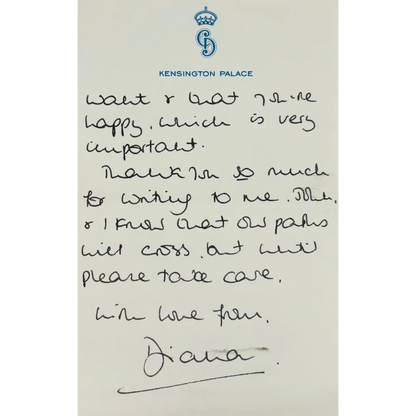 KENSINGTON PALACE
want & that you're
happy, which is very
important.
Thank you so much
for writing to me, John,
& I know that our paths
will cross, but until
please take care,
with love from,
Diana